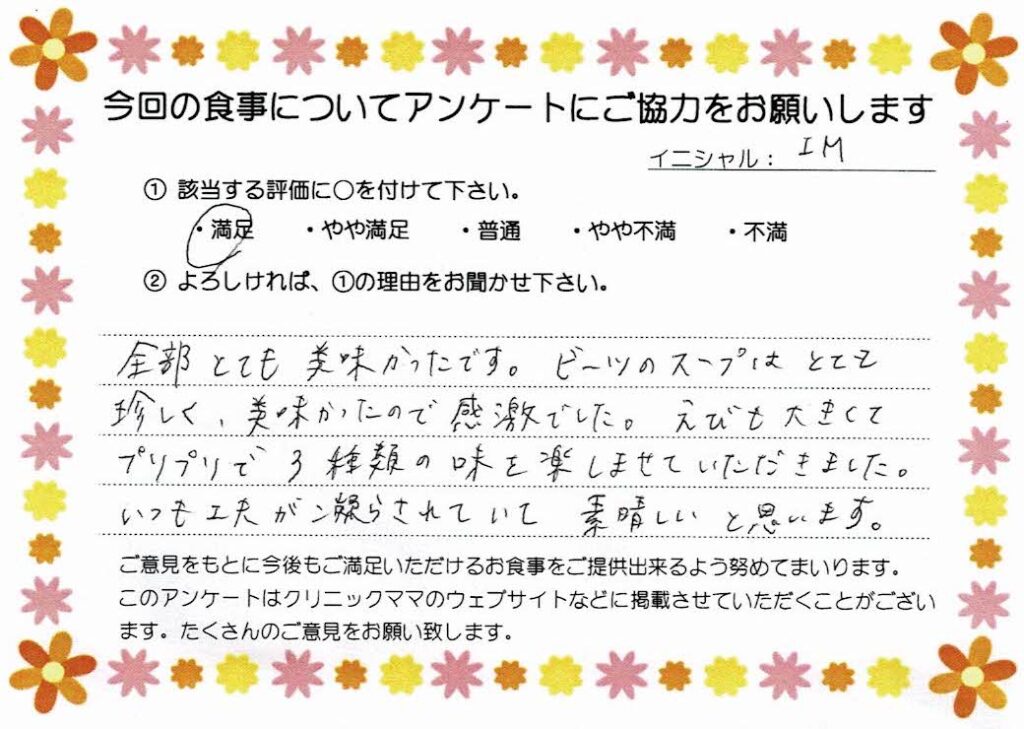 今回の食事についてアンケートにご協力をお願いします
イニシャル： IM
① 該当する評価に○を付けて下さい。
・満足 ・やや満足 ・普通 ・やや不満 ・不満
② よろしければ、①の理由をお聞かせ下さい。
全部とても美味かったです。ビーツのスープはとても
珍しく、美味かったので感激でした。えびも大きくて
プリプリで3種類の味を楽しませていただきました。
いつも工夫が凝らされていて 素晴しいと思います。
ご意見をもとに今後もご満足いただけるお食事をご提供出来るよう努めてまいります。
このアンケートはクリニックママのウェブサイトなどに掲載させていただくことがござい
ます。たくさんのご意見をお願い致します。